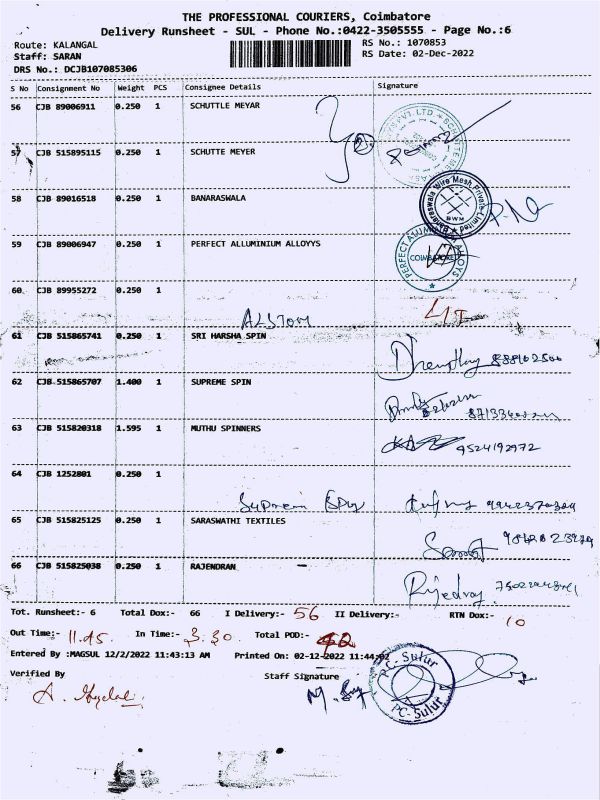 THE PROFESSIONAL COURIERS, Coimbatore
Delivery Runsheet - SUL - Phone No.:0422-3505555 - Page No.:6
Route: KALANGAL
Staff: SARAN
DRS No.: DCJB107085306
RS No.: 1070853
RS Date: 02-Dec-2022
S No Consignment No Weight PCS Consignee Details Signature
56 CJB 89006911 0.250 1 SCHUTTLE MEYAR
57 CJB 515895115 0.250 1 SCHUTTE MEYER
58 CJB 89016518 0.250 1 BANARASWALA
Banaraswala Wire Mesh Private Limited
BWM
59 CJB 89006947 0.250 1 PERFECT ALLUMINIUM ALLOYYS
COIMBATORE
60 CJB 89955272 0.250 1
ALSTOM
61 CJB 515865741 0.250 1 SRI HARSHA SPIN
62 CJB 515865707 1.400 1 SUPREME SPIN
63 CJB 515820318 1.595 1 MUTHU SPINNERS
9524192972
64 CJB 1252801 0.250 1
65 CJB 515825125 0.250 1 SARASWATHI TEXTILES
66 CJB 515825038 0.250 1 RAJENDRAN
Tot. Runsheet:- 6 Total Dox:- 66 I Delivery:- 56 II Delivery:- RTN Dox:- 10
Out Time:- 11.45 In Time:- 3.30 Total POD:-
Entered By :MAGSUL 12/2/2022 11:43:13 AM Printed On: 02-12-2022 11:44:02
Verified By Staff Signature
PC-Sulur
PC-Sulur